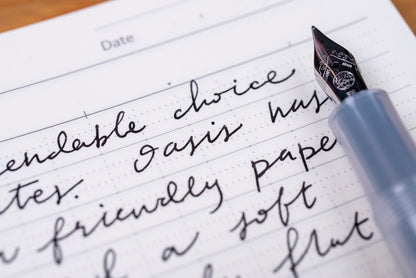 Date
endable choice
tes. Oasis has
friendly pape
f a soft
flat